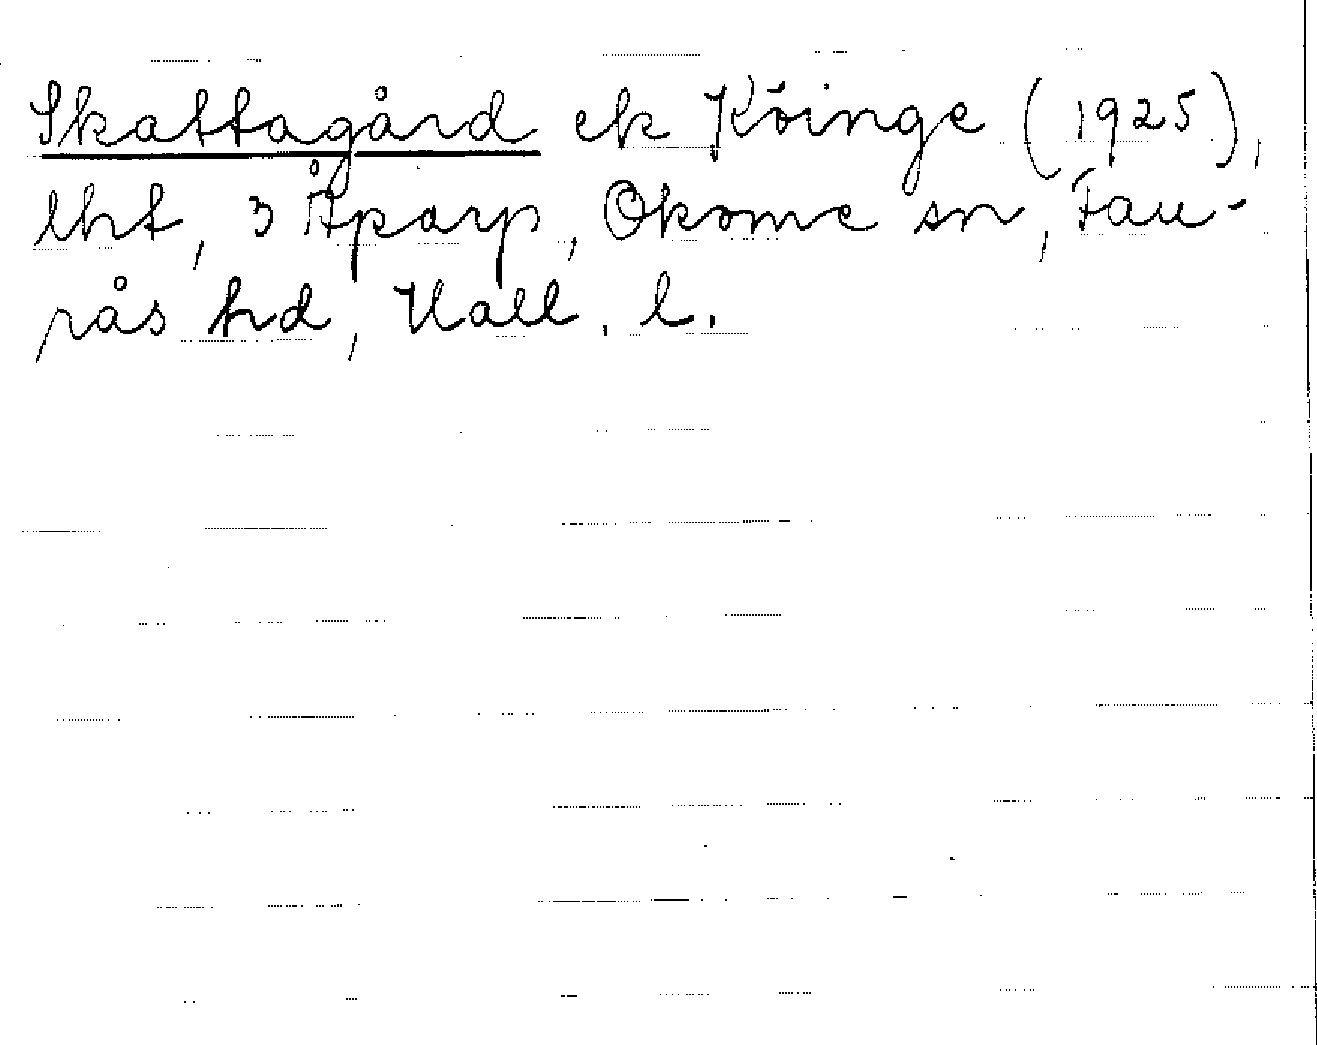 Skattagård ek Köinge (1925),
lht, 3 Åparp, Okome sn, Fau-
rås hd, Hall. l.